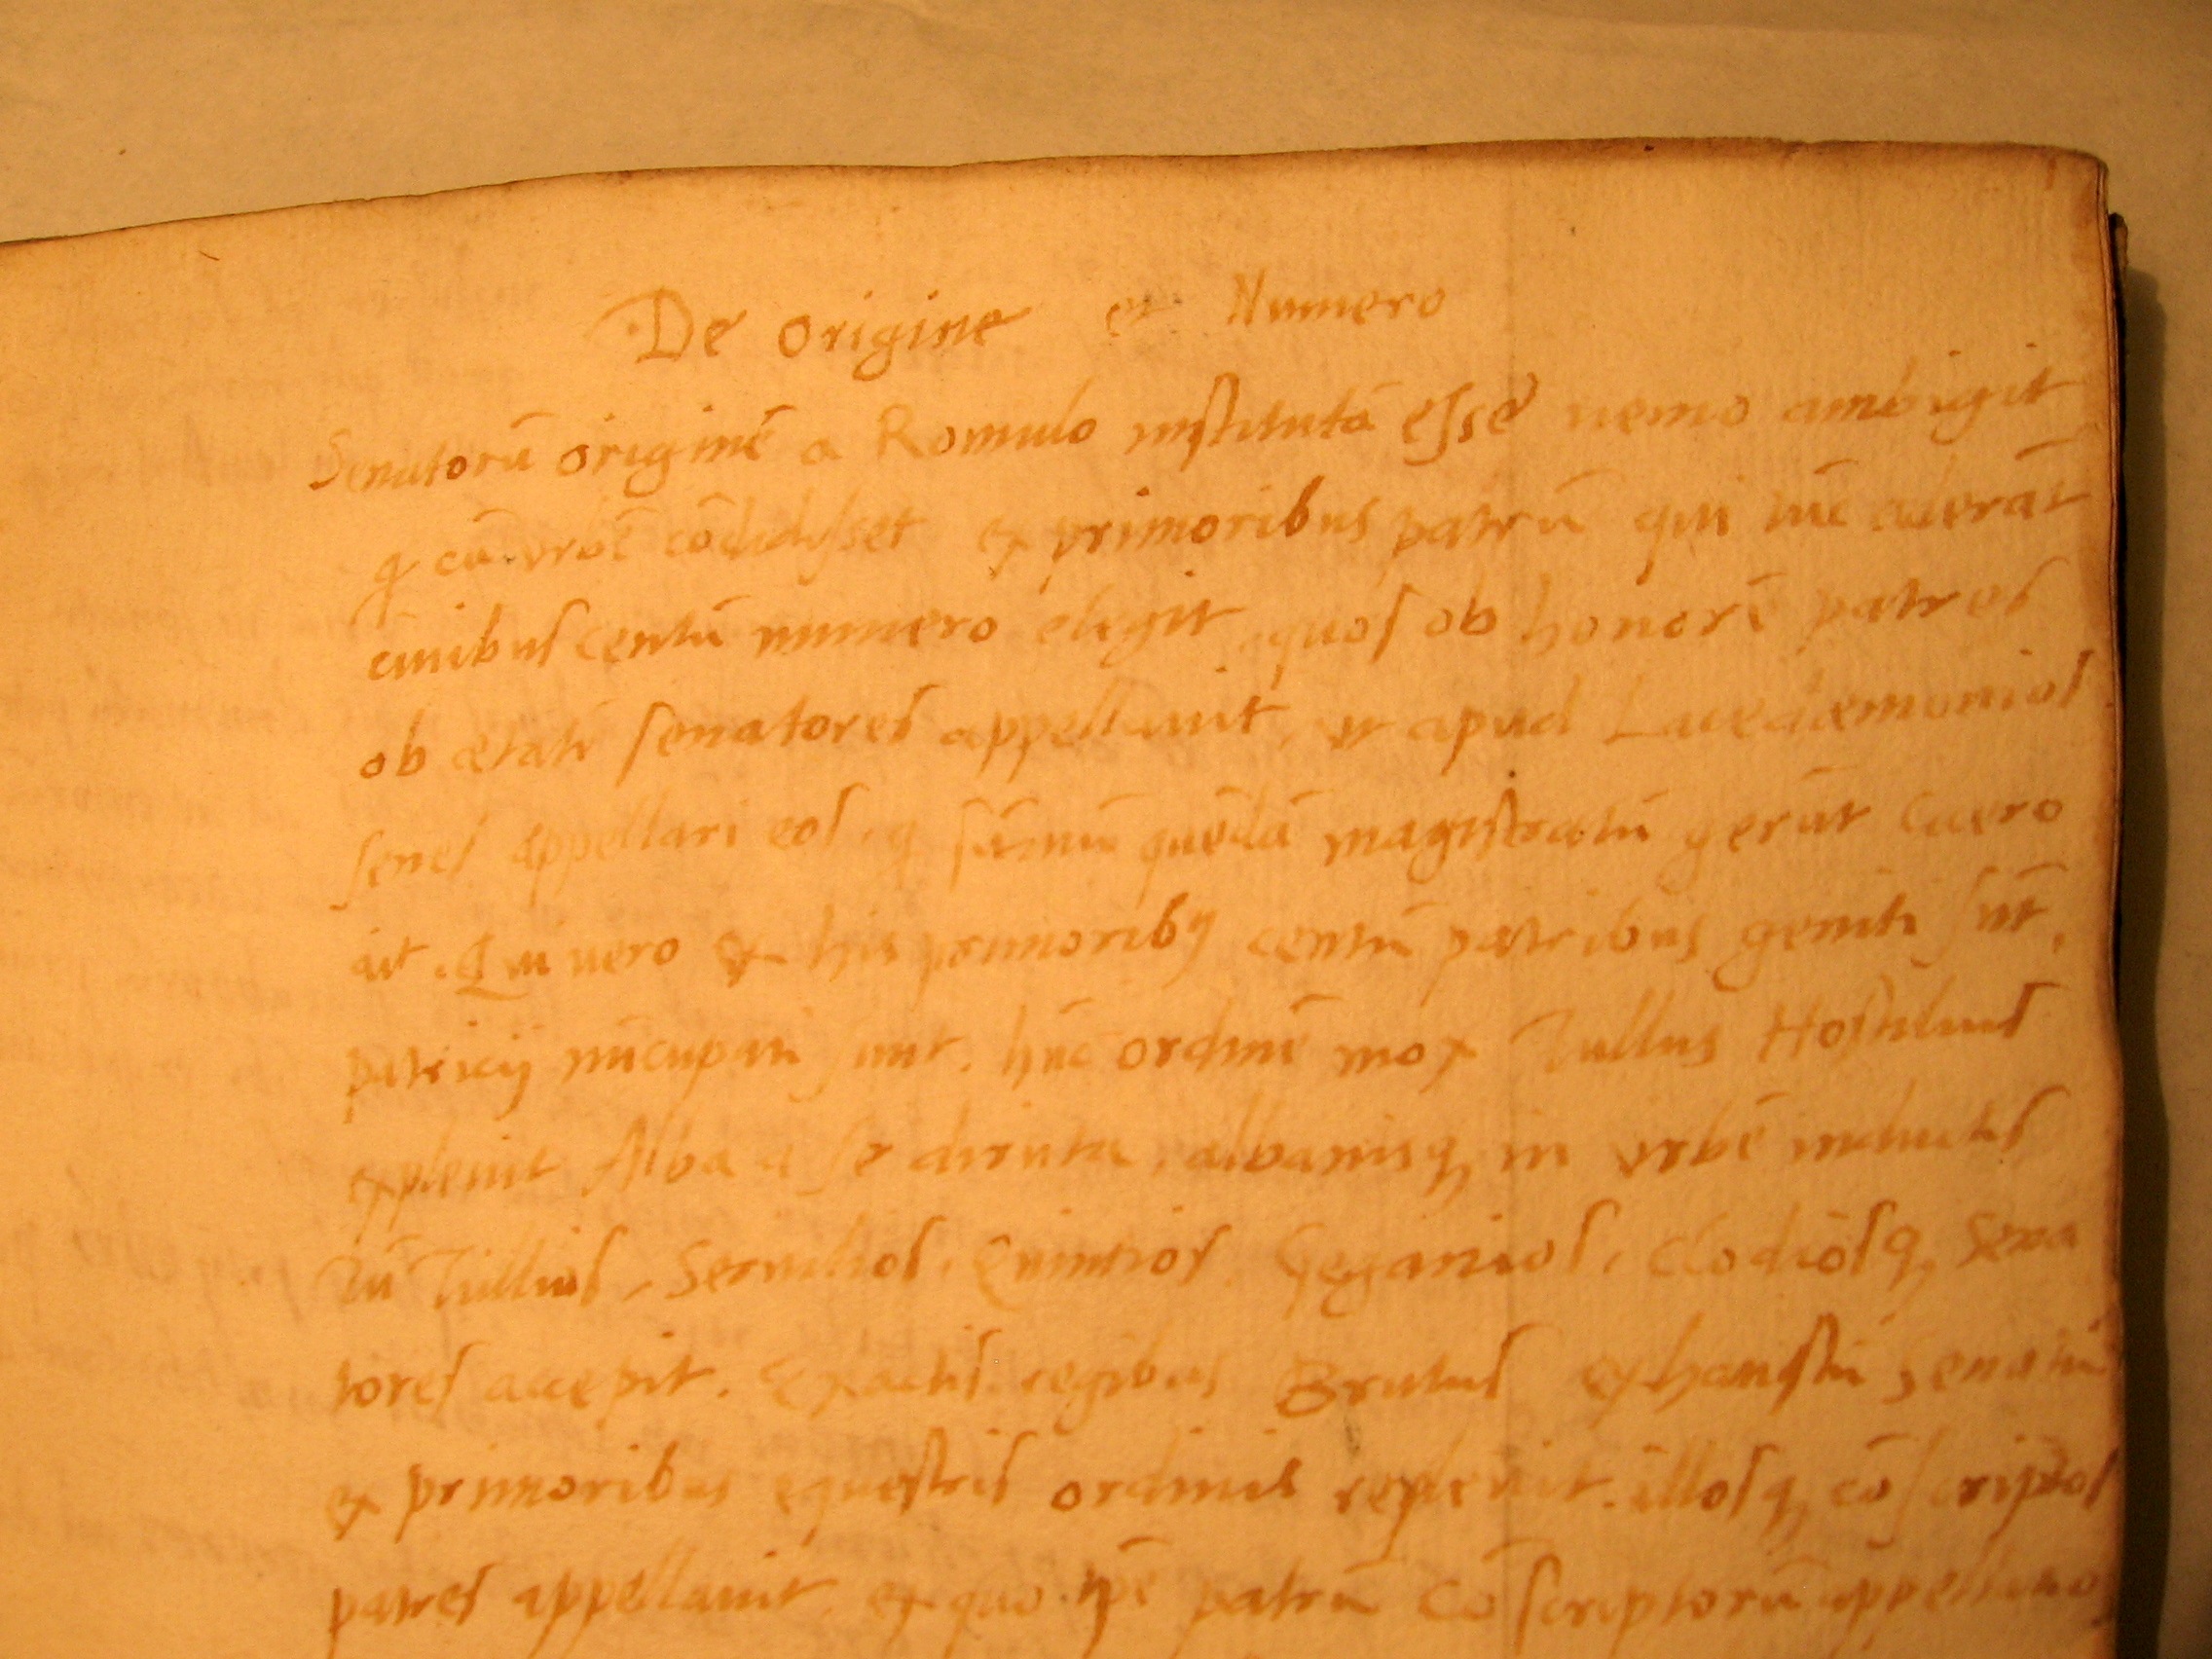 De origine et Numero
Senatorū originē a Romulo institutā esse nemo ambigit
q cū vrbē cōdidisset ex primoribus patrū qui tūc aderāt
ciuibus centū numero elegit, quos ob honorē patres
ob ætatē senatores appellauit, vt apud Lacedæmonios
senes appellari eos, q sūmū quēdā magistratū gerūt Cicero
ait. Qui vero ex his primoribꝰ centū patribus geniti sūt,
patricij nūcupati sunt. hūc ordinē mox Tullus Hostilius
expleuit Alba a se diruta, albanisq in vrbē inductis
Tū Tullios, Seruilios, Quintios, Geganios, Clodiosq, sena
tores accepit. Exactis regibus Brutus exhaustū senatū
ex primoribus equestris ordinis repleuit. illosq cōscriptos
patres appellauit, ex quo tpē patrū cōscriptorū appellatio